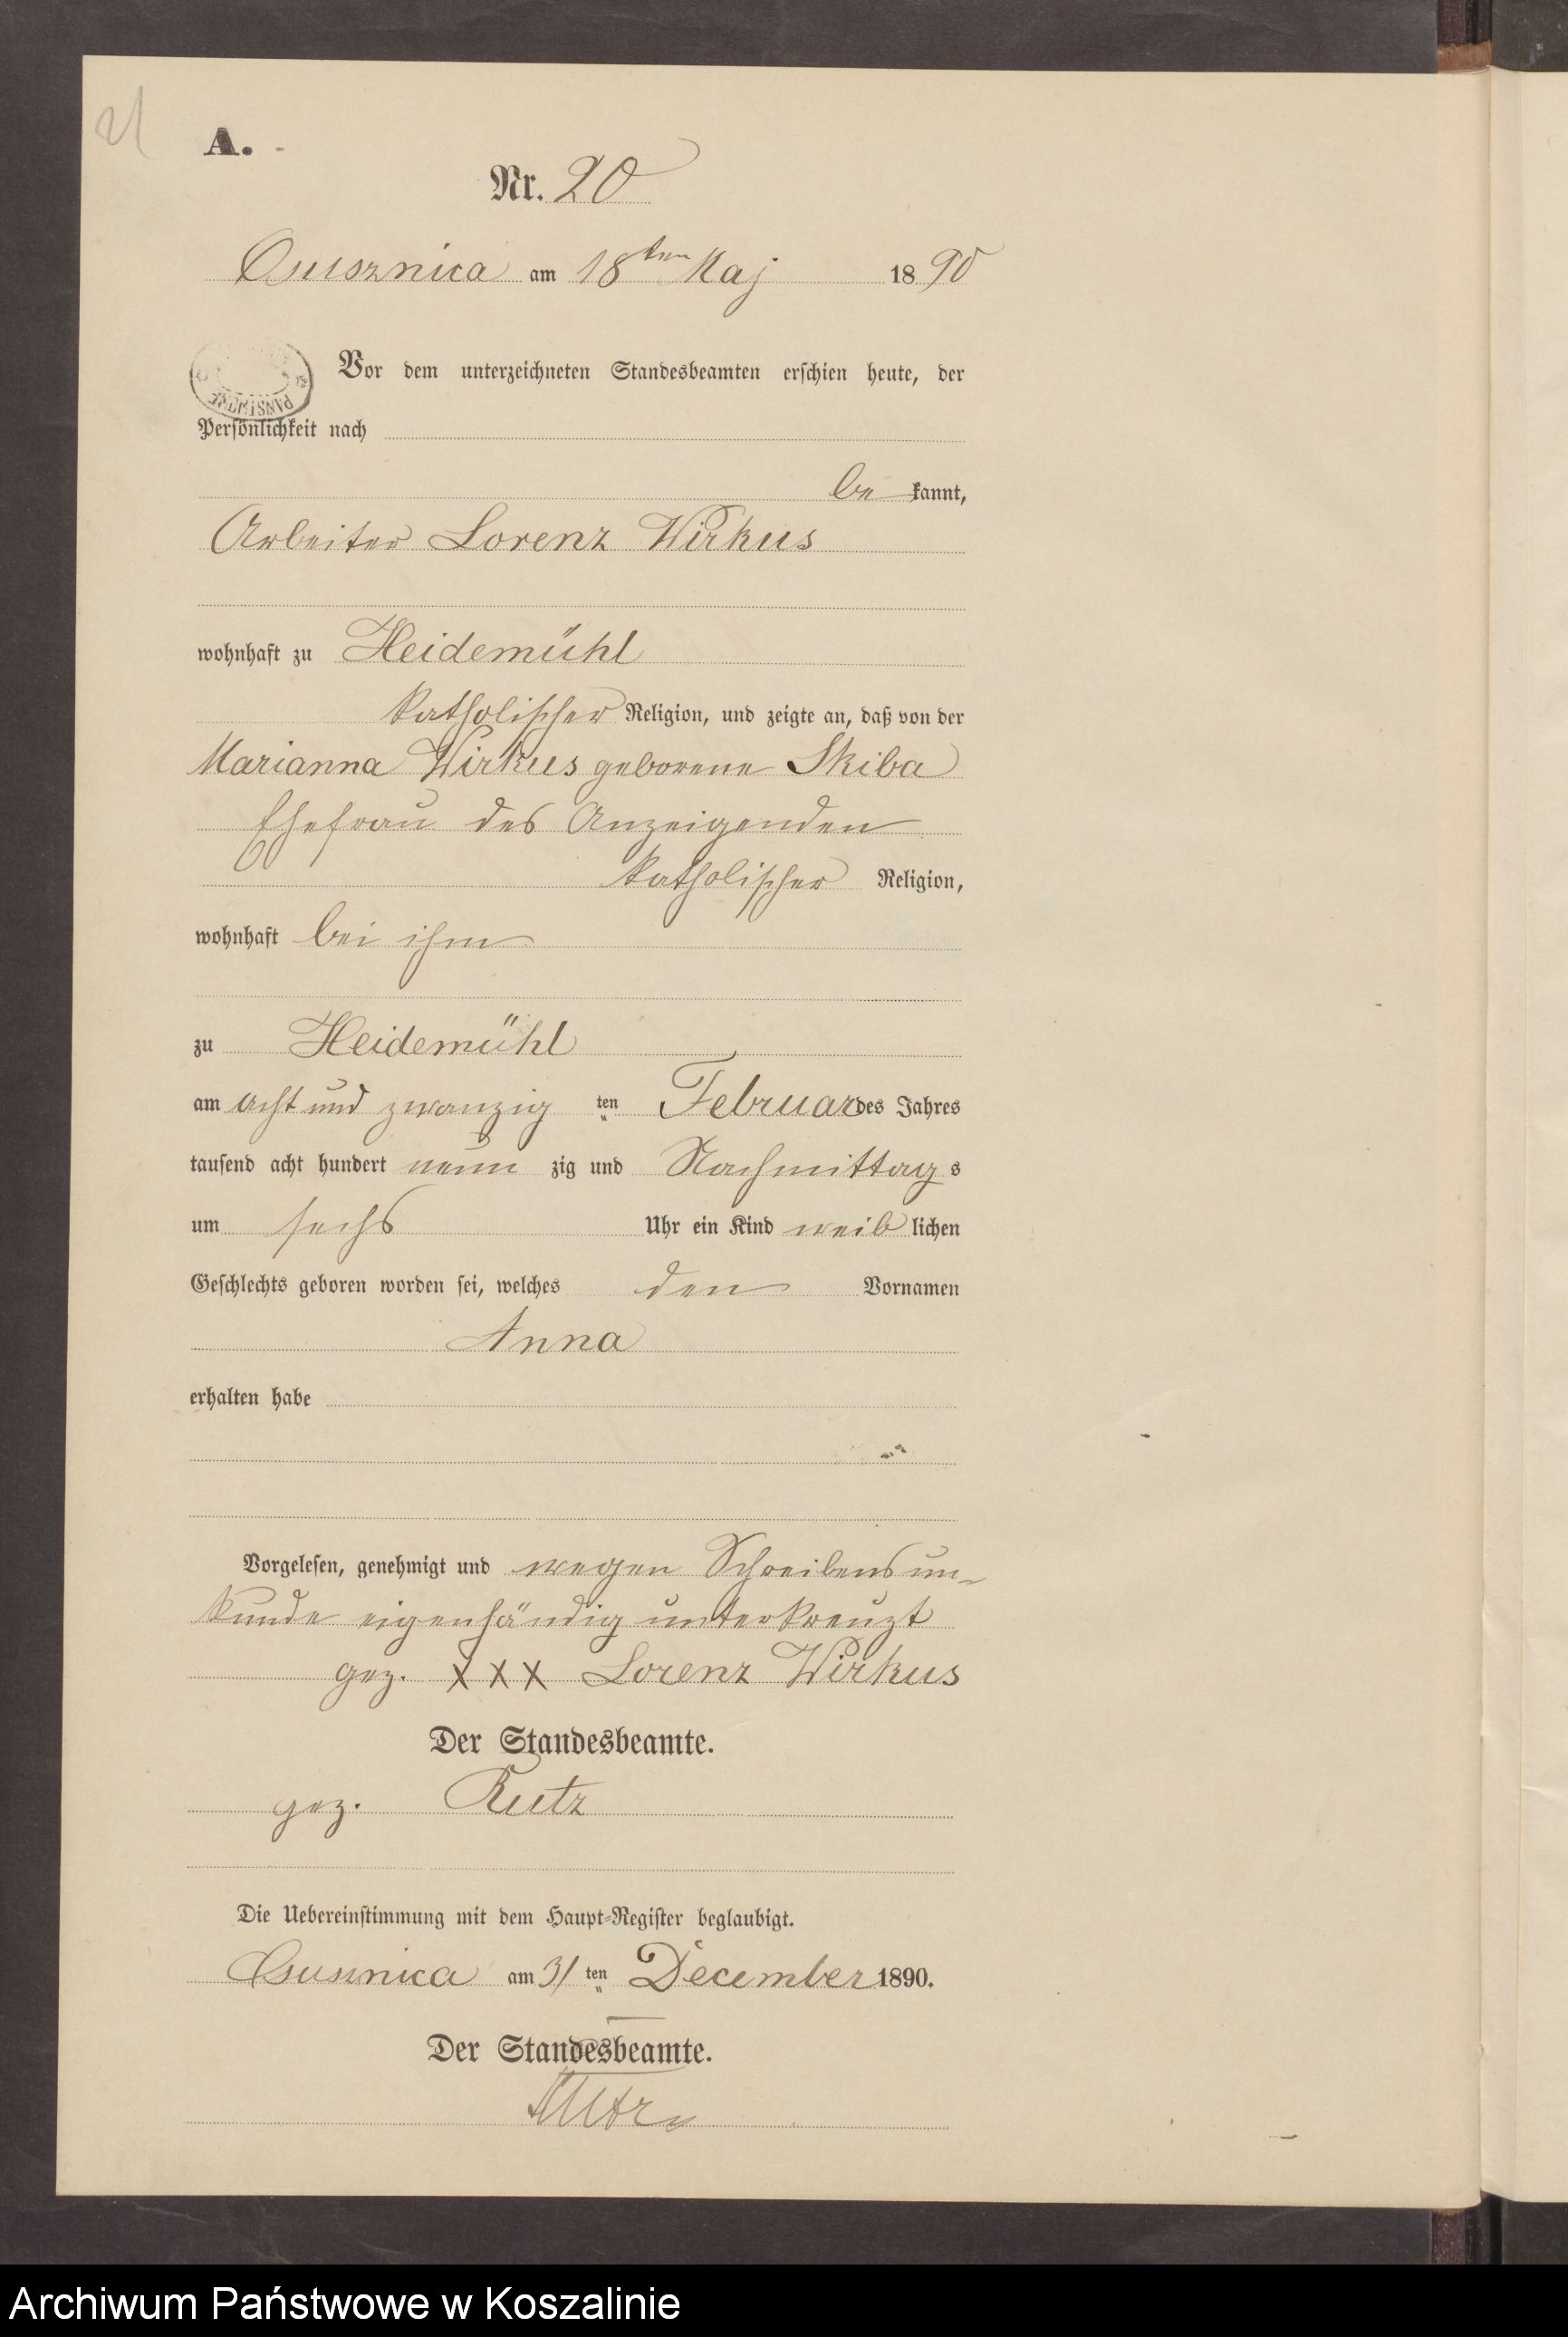 21
A.
Nr. 20
am 18ten Maj 1890
Vor dem unterzeichneten Standesbeamten erschien heute, der
Persönlichkeit nach
be kannt,
Arbeiter Lorenz Wirkus
wohnhaft zu Heidemühl
katholischer Religion, und zeigte an, daß von der
Marianna Wirkus geborene Skiba
Ehefrau des Anzeigenden
katholischer Religion,
wohnhaft bei ihm
zu Heidemühl
am acht und zwanzig ten Februar des Jahres
tausend acht hundert neun zig und Nachmittag s
um sechs Uhr ein Kind weib lichen
Geschlechts geboren worden sei, welches den Vornamen
Anna
erhalten habe
Vorgelesen, genehmigt und wegen Schreibensun-
kunde eigenhändig unterkreuzt
gez. X X X Lorenz Wirkus
Der Standesbeamte.
gez. Kutz
Die Uebereinstimmung mit dem Haupt-Register beglaubigt.
am 31 ten December 1890.
Der Standesbeamte.
Kutz
Archiwum Państwowe w Koszalinie